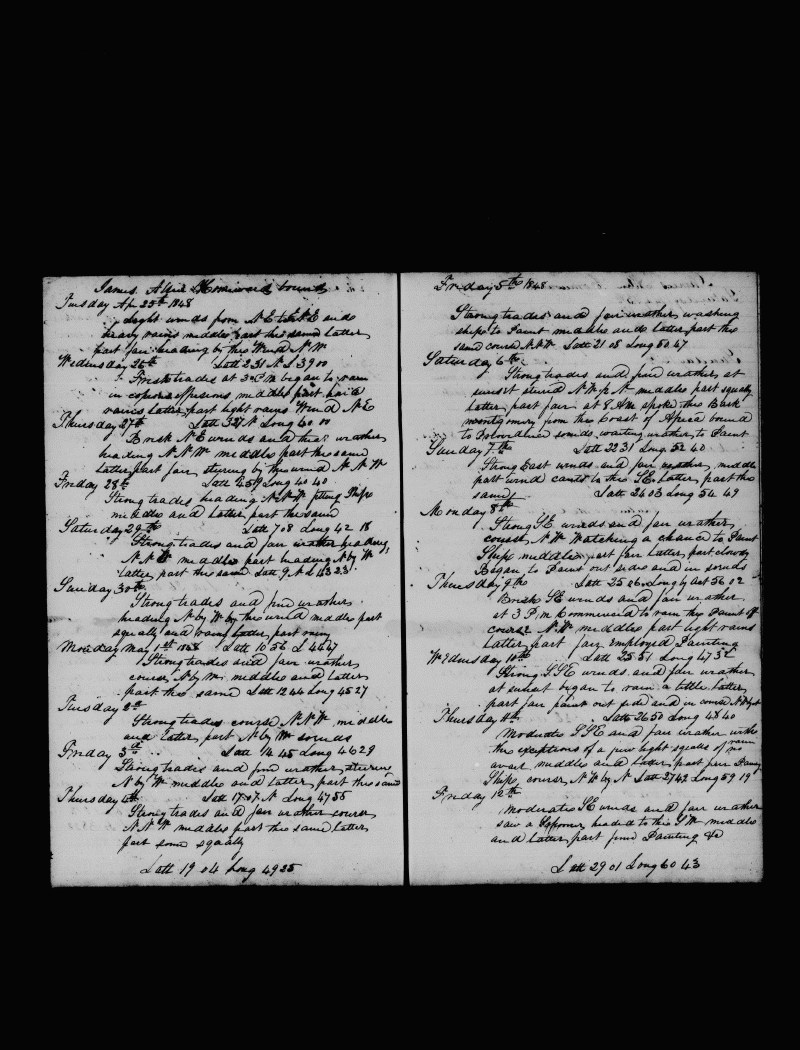 James Homeward bound
Tuesday Apr 25th 1848
Light winds from N E to E N E ends
heavy rains middle part the same latter
part fair heading by the Wind N W
Wednesday 26th Latt 2 31 N L 39 00
Fresh trades at 3 P M began to rain
in middle part
rains latter part light rains Wind N E
Thursday 27th Latt Long 40 00
Brisk N E winds and weather
heading N N W middle part the same
latter part fair by the wind N N W
Friday 28th Latt 4 59 Long 40 40
Strong trades heading N N W Ships
middle and latter part the same
Saturday 29th Latt 7 08 Long 42 18
Strong trades and fair weather heading
N N W middle part heading N by W
latter part the same Latt 9 N L 43 23
Sunday 30th
Strong trades and fine weather
heading N by W by the wind middle part
squally and rainy latter part
Monday May 1st 1848 Latt 10 56 L 44 47
Strong trades and fair weather
course N by W middle and latter
part the same Latt 12 44 Long 45 27
Tuesday 2d
Strong trades course N N W middle
and latter part N by W
Friday 3th Latt 14 45 Long 46 29
Strong trades and fine weather
N by W middle and latter part the same
Thursday 4th Latt 17 07 N Long 47 55
Strong trades and fair weather course
N N W middle part the same latter
part some squally
Latt 19 04 Long 49 25
Friday 5th 1848
Strong trades and fair weather washing
ship to Paint middle and latter part the
same course N N W Latt 21 08 Long 50 47
Saturday 6th
Strong trades and fine weather at
sunset N W by N middle part squally
latter part fair at 8 AM spoke the Bark
montgomery from the Coast of Africa bound
to waiting weather to Paint
Sunday 7th Latt 22 31 Long 52 40
Strong East winds and fair weather middle
part wind to the SE latter part the
same Latt 24 03 Long 54 49
Monday 8th
Strong SE winds and fair weather
course N W Watching a chance to Paint
Ship middle part fair latter part cloudy
Began to Paint out side and in
Thursday 9th Latt 25 26 Long by Act 56 02
Brisk SE winds and fair weather
at 3 P m Commenced to rain the Paint off
course N W middle part light rains
latter part fair employed Painting
Wednesday 10th Latt 25 51 Long 47 32
Strong S S E winds and fair weather
at sunset began to rain a little latter
part fair paint out side and in course
Thursday 11th Latt 26 50 Long 48 40
Moderate S S E and fair weather with
the exceptions of a few light squales of rain
no avail middle and latter part fair
Ship course N W by N Latt 27 42 Long 59 19
Friday 12th
Moderate SE winds and fair weather
saw a headed to the S W middle
and latter part fine Painting &c
Latt 29 01 Long 60 43